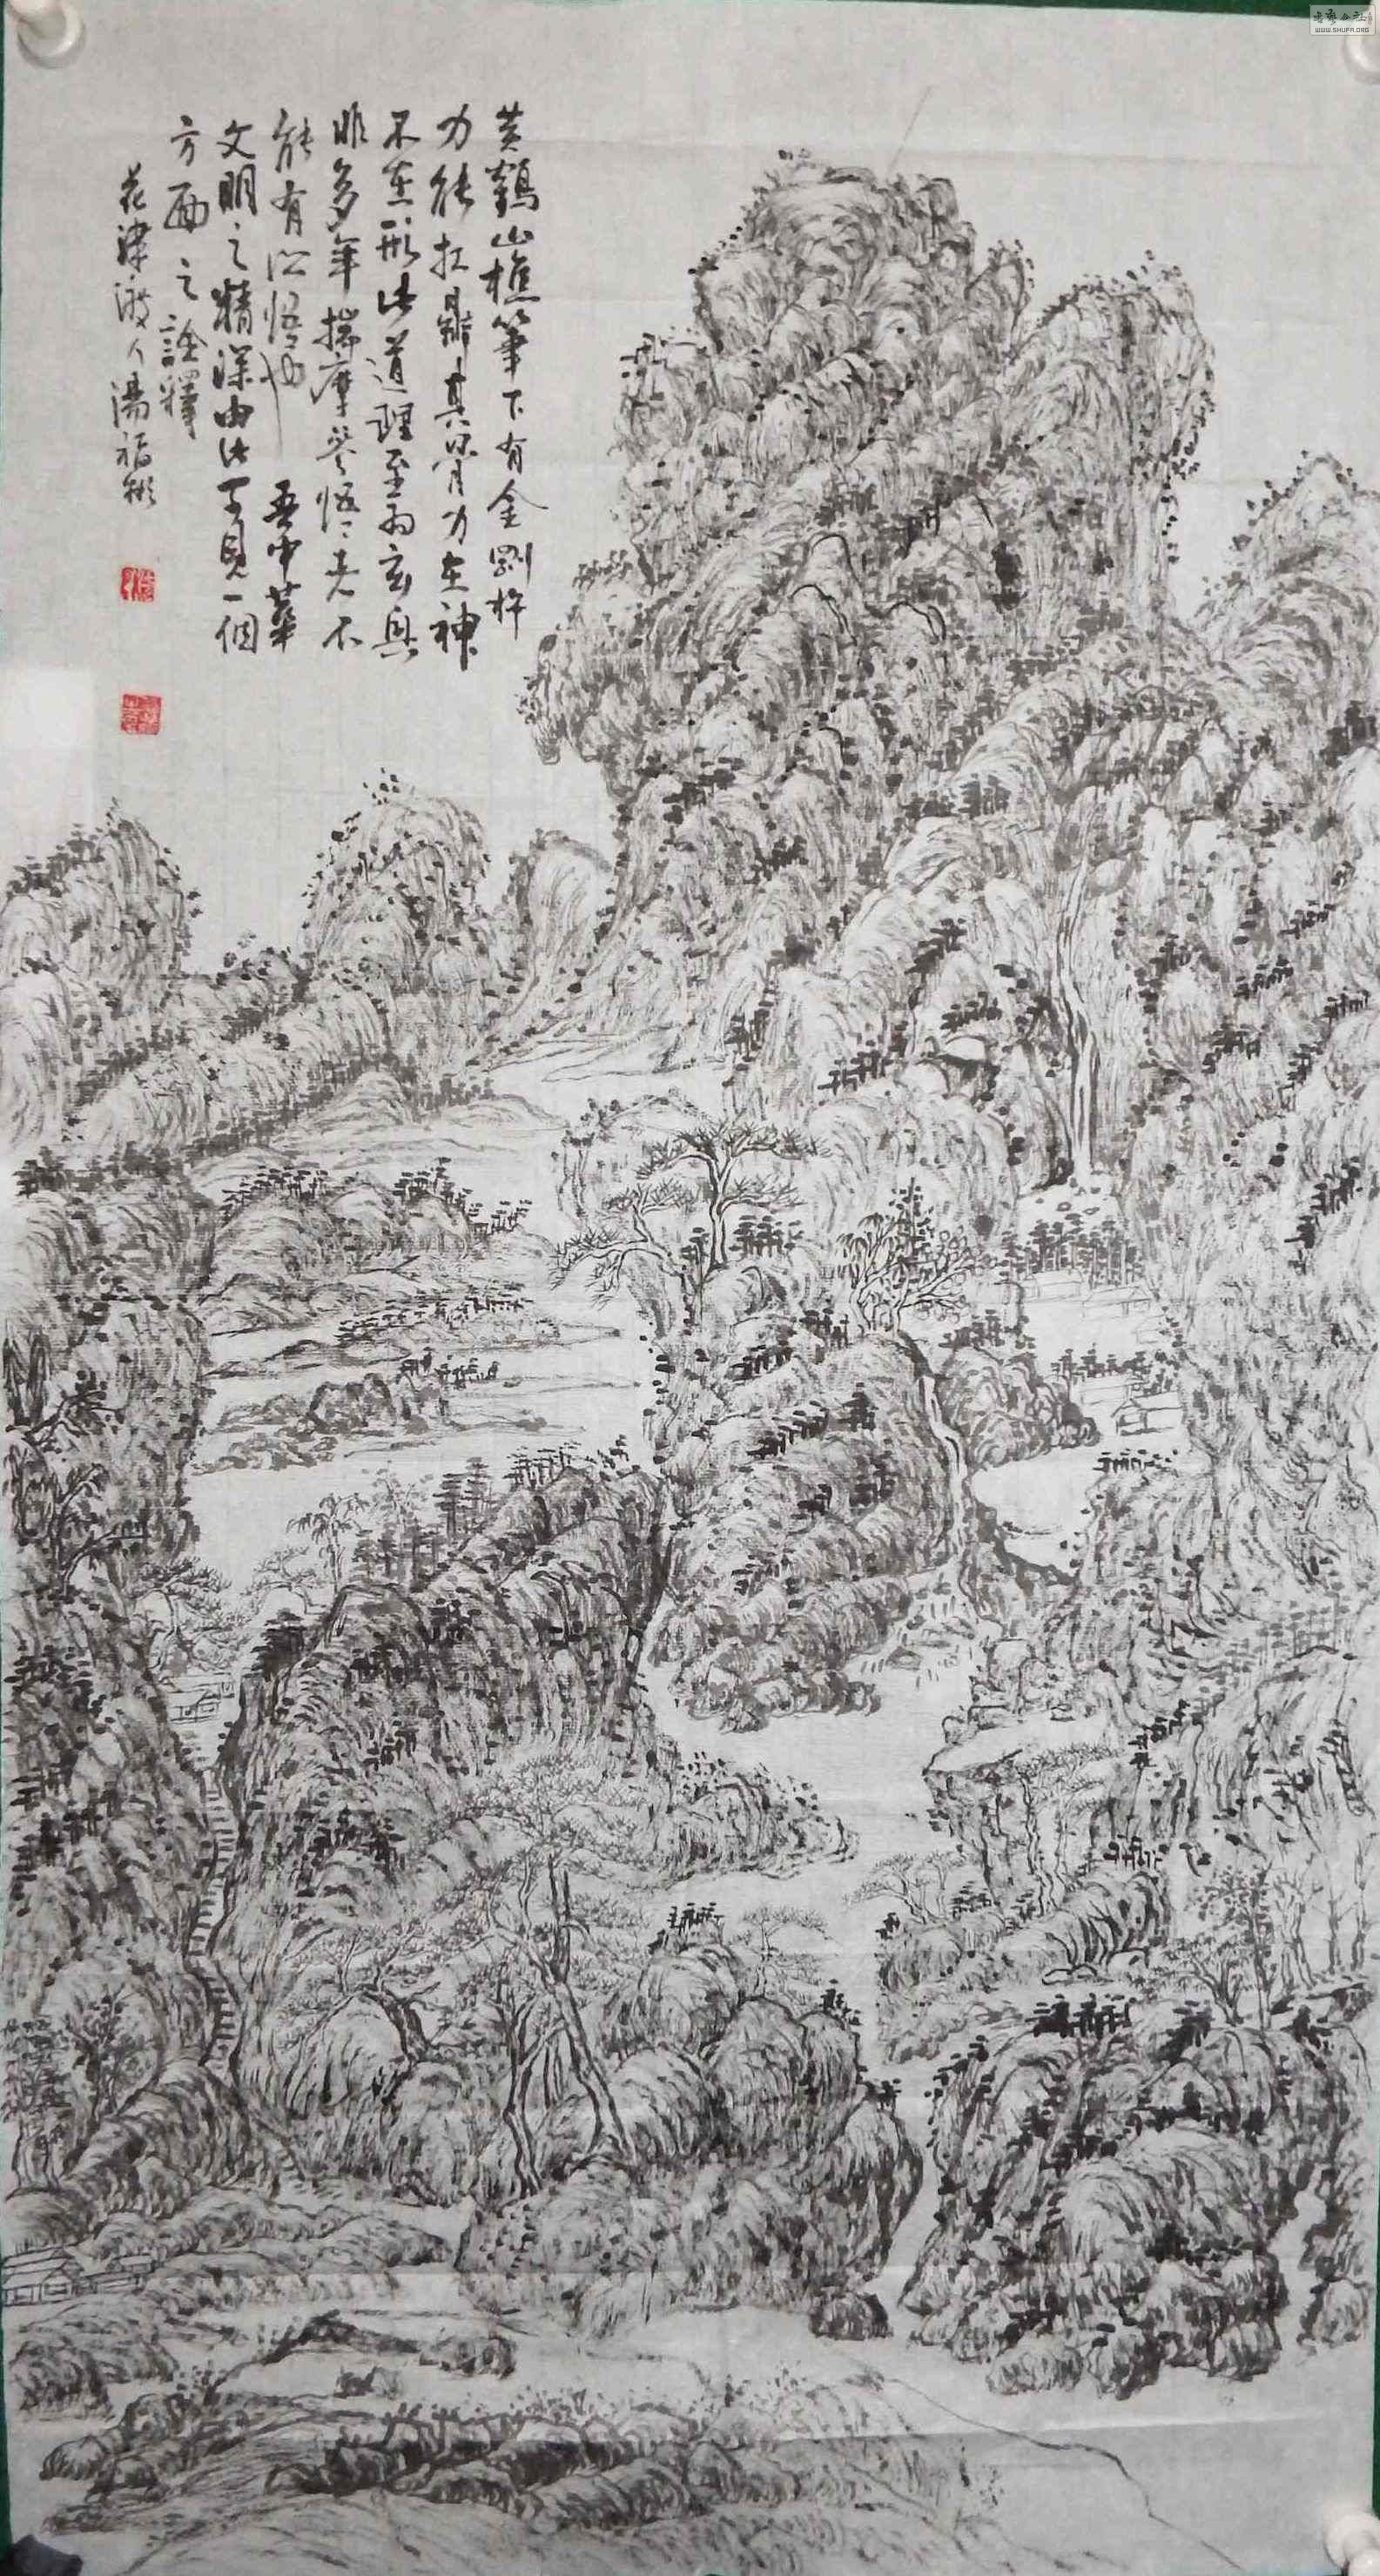 黄鶴山樵筆下有金剛杵
力能扛鼎其骨力在神
不在形此道理至为玄奥
非多年揣摩参悟者不
能有所悟也 吾中華
文明之精深由此可見一個
方面之詮釋
花津波人湯福
WWW.SHUFA.ORG